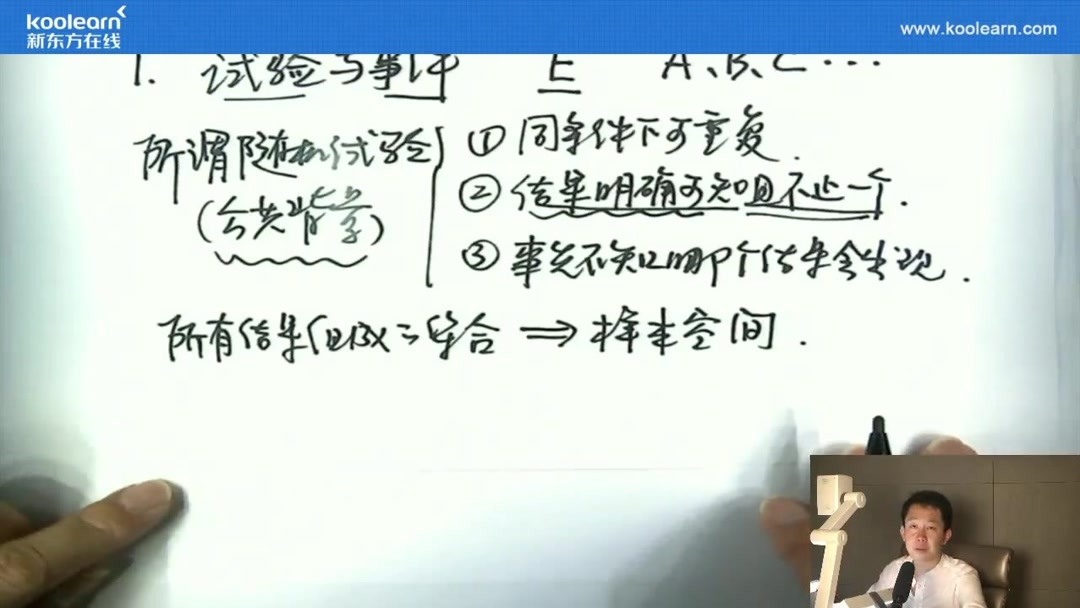 koolearn
新东方在线
www.koolearn.com
1. 试验与事件 E A、B、C…
所谓随机试验
(公共背景)
① 同条件下可重复.
② 结果明确可知且不止一个.
③ 事先不知哪个结果会出现.
所有结果组成之集合 ⇒ 样本空间.